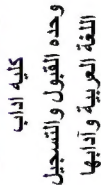 كليه اداب
وحده القبول والتسجيل
اللغة العربية وآدابها